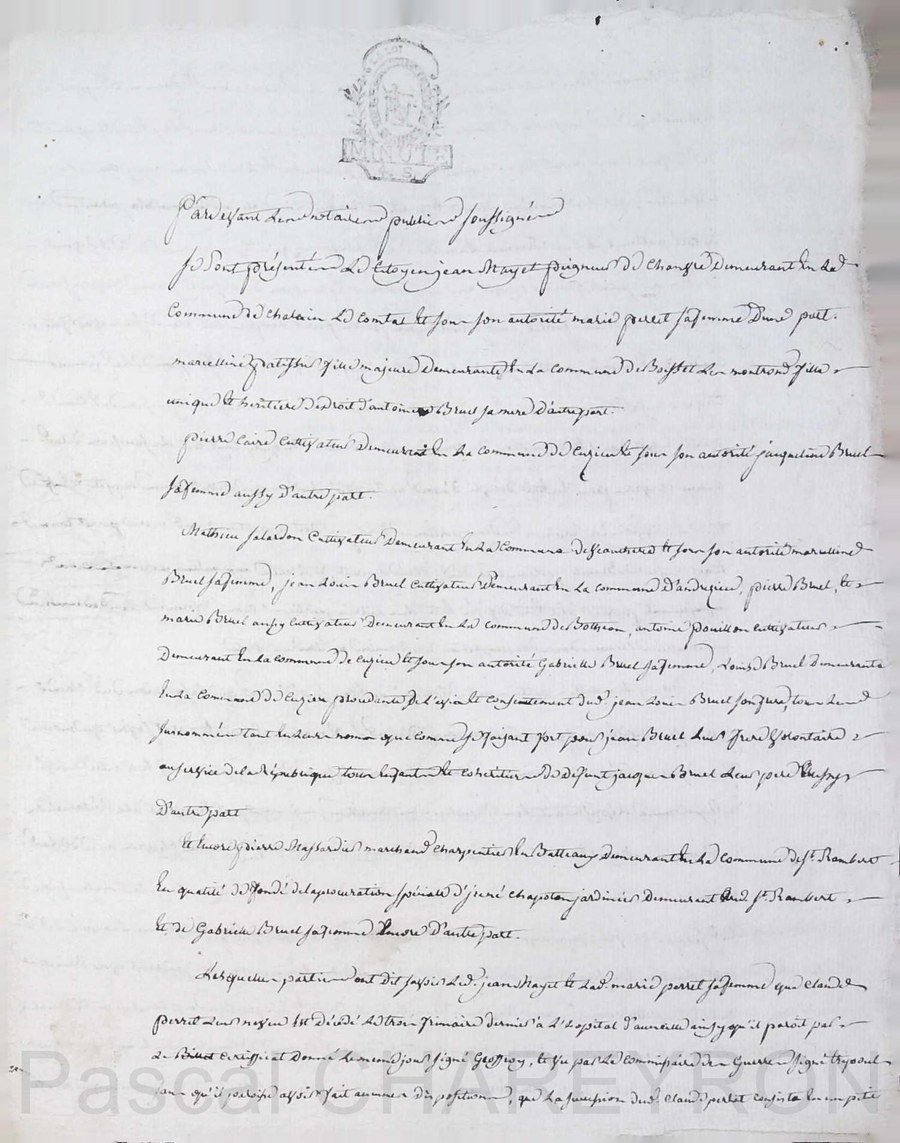 LA LOI
MINUTE
Pardevant Les notaires publics soussignés
Se Sont présentés Le Citoyen jean Mayet peigneur de Chanvre Demeurant En La de
Commune de Chalain Le Comtal Et sous son autorité marie perret sa femme D'une part.
marcelline fille majeure Demeurante En La Commune de Boisset Les montrond fille
unique Et héritière de droit d'antoinette Bruel sa mere D'autre part.
pierre Caire Cultivateur Demeurant En La Commune de Cuzieu Et sous son autorité jacqueline Bruel
sa femme aussy d'autre part.
Mathieu Salardon Cultivateur Demeurant En La Commune Et sous son autorité marcelline
Bruel sa femme, jean Louis Bruel Cultivateur Demeurant En La Commune D'andrezieu, pierre Bruel, Et
marie Bruel aussy Cultivateurs Demeurant En La Commune de Botheon, antoine pouillon Cultivateur
Demeurant En La Commune de Cuzieu Et sous son autorité Gabrielle Bruel sa femme, Louise Bruel Demeurante
En La Commune de Cuzieu procedante De L'avis Et Consentement dud. jean Louis Bruel son frere, tous Les
surnommés tant En Leurs noms que comme se faisant fort pour jean Bruel Leur frere Volontaire
au service de la République tous Enfants Et héritiers De Défunt jacques Bruel Leur pere
D'autre part
Et Encore pierre Massardier marchand Charpentier En Batteaux Demeurant En La Commune de St. Rambert
En qualité de fondé de la procuration spéciale d'jréné Chapoton jardinier Demeurant St. Rambert
Et de Gabrielle Bruel sa femme Encore D'autre part.
Lesquelles parties ont dit savoir Led. jean Mayet Et Lad. marie perret sa femme que Claude
perret Leur neveu Est Décédé Le trois frimaire dernier à L'hopital ainsy qu'il paroit par
Le Certificat Donné Le même jour signé Geoffroy, Et Vu par Le Commissaire des Guerres signé
sans qu'il paroisse avoir fait aucunes dispositions, que La succession dud. Claude perret consiste En un petit
Pascal CHAREYRON